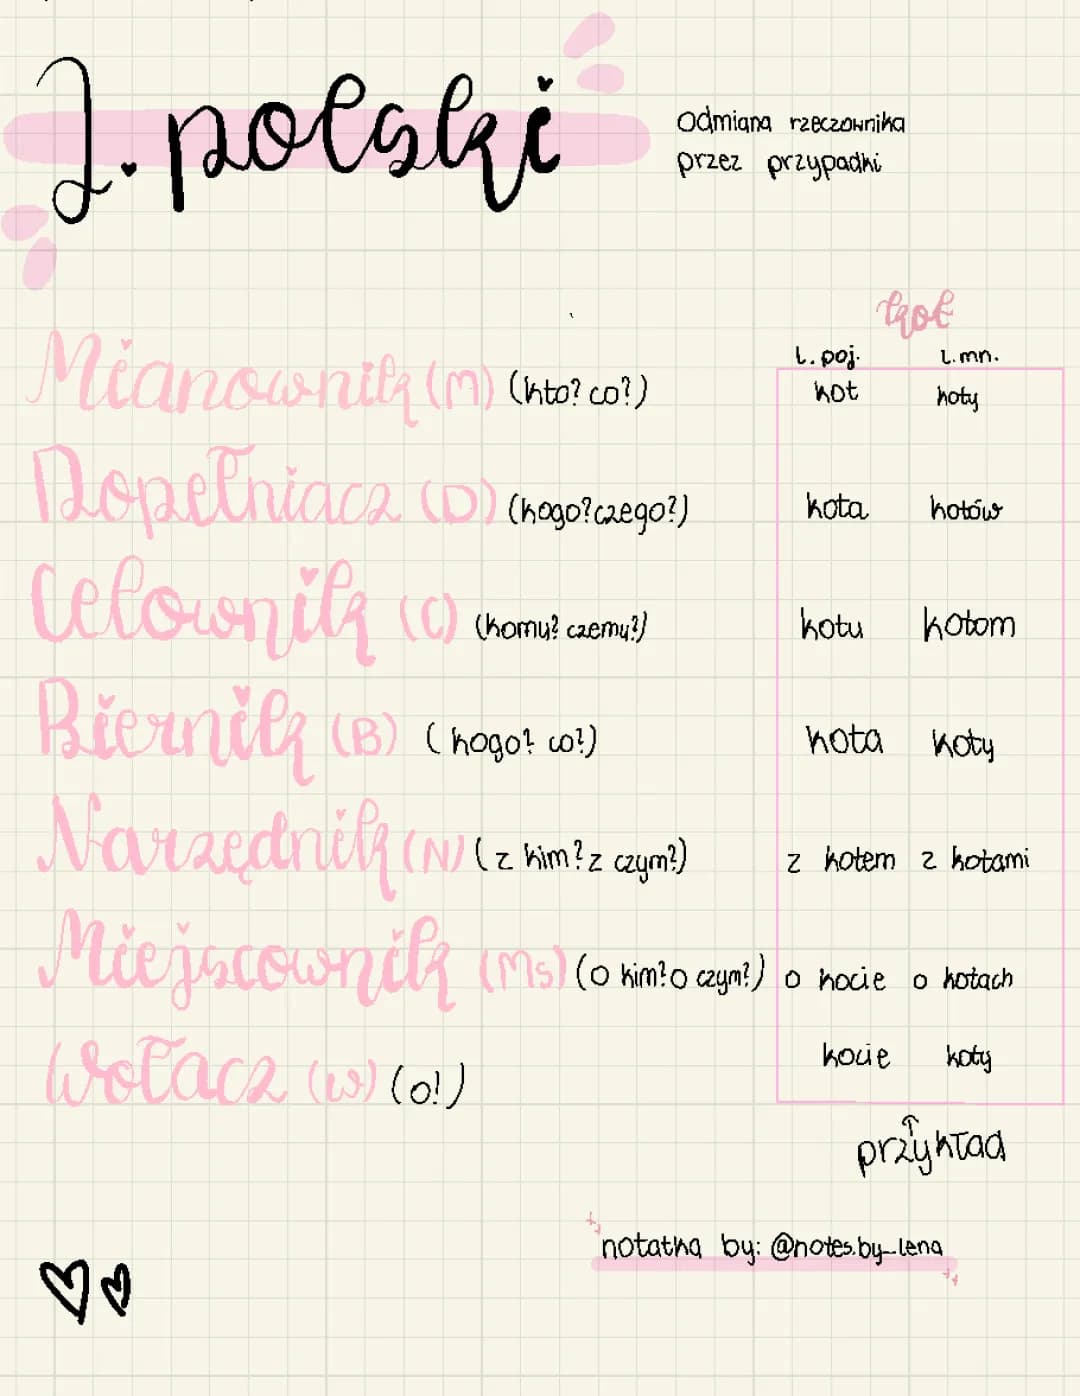 J. polski
Odmiana rzeczownika
przez przypadki
kot
l. poj. l. mn.
Mianownik (M) (kto? co?) kot koty
Dopełniacz (D) (kogo? czego?) kota kotów
Celownik (C) (komu? czemu?) kotu kotom
Biernik (B) (kogo? co?) kota koty
Narzędnik (N) (z kim? z czym?) z kotem z kotami
Miejscownik (Ms) (o kim? o czym?) o kocie o kotach
Wołacz (w) (o!) kocie koty
przykład
notatka by: @notes.by_lena